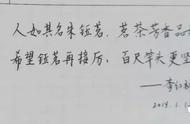 人如其名朱钰茗，茗茶芳香品
希望钰茗再接厉，百尺竿头更坚
——李红
2019.1.1